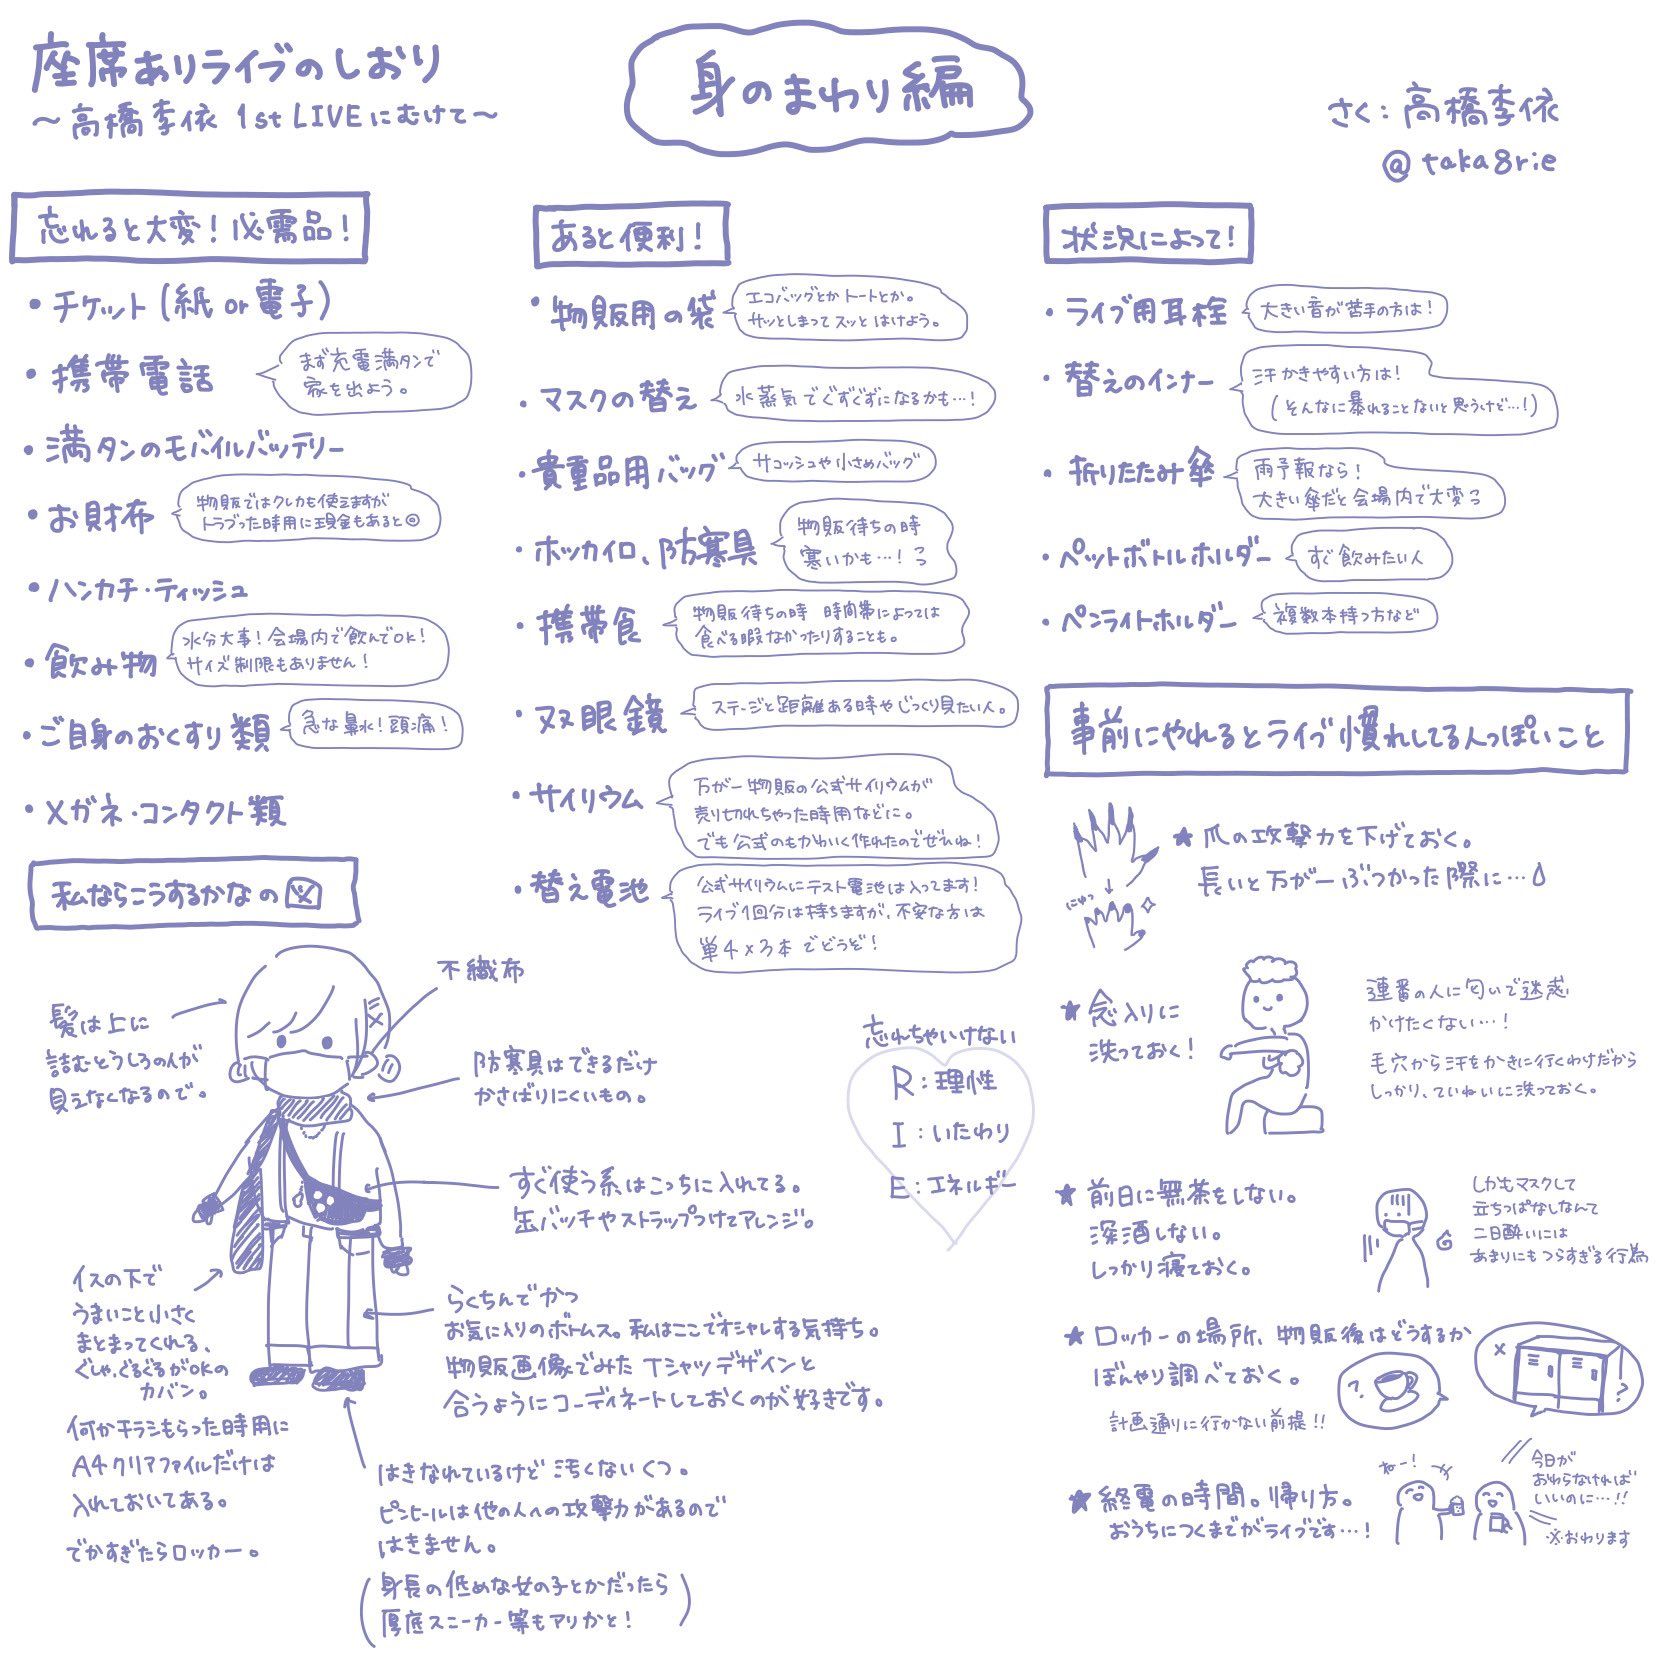 座席ありライブのしおり
〜高橋李依 1st LIVEにむけて〜
身のまわり編
さく：高橋李依
@taka8rie
忘れると大変！必需品！
・チケット（紙or電子）
・携帯電話
まず充電満タンで
家を出よう。
・満タンのモバイルバッテリー
・お財布
物販ではクレカも使えますが
トラブった時用に現金もあると◎
・ハンカチ・ティッシュ
・飲み物
水分大事！会場内で飲んでOK！
サイズ制限もありません！
・ご自身のおくすり類
急な鼻水！頭痛！
・メガネ・コンタクト類
あると便利！
・物販用の袋
エコバッグとかトートとか。
サッとしまってスッとはけよう。
・マスクの替え
水蒸気でぐずぐずになるかも…！
・貴重品用バッグ
サコッシュや小さめバッグ
・ホッカイロ、防寒具
物販待ちの時
寒いかも…！っ
・携帯食
物販待ちの時 時間帯によっては
食べる暇なかったりすることも。
・双眼鏡
ステージと距離ある時やじっくり見たい人。
・サイリウム
万が一物販の公式サイリウムが
売り切れちゃった時用などに。
でも公式のもかわいく作れたのでぜひね！
・替え電池
公式サイリウムにテスト電池は入ってます！
ライブ1回分は持ちますが、不安な方は
単4×3本でどうぞ！
状況によって！
・ライブ用耳栓
大きい音が苦手の方は！
・替えのインナー
汗かきやすい方は！
（そんなに暴れることないと思うけど…！）
・折りたたみ傘
雨予報なら！
大きい傘だと会場内で大変っ
・ペットボトルホルダー
すぐ飲みたい人
・ペンライトホルダー
複数本持つ方など
私ならこうするかなの図
不織布
髪は上に
詰むとうしろの人が
見えなくなるので。
防寒具はできるだけ
かさばりにくいもの。
すぐ使う系はこっちに入れてる。
缶バッチやストラップつけてアレンジ。
イスの下で
うまいこと小さく
まとまってくれる、
ぐしゃぐるぐるがOKの
カバン。
何かチラシもらった時用に
A4クリアファイルだけは
入れておいてある。
でかすぎたらロッカー。
らくちんでかつ
お気に入りのボトムス。私はここでオシャレする気持ち。
物販画像でみたTシャツデザインと
合うようにコーディネートしておくのが好きです。
はきなれているけど汚くないくつ。
ピンヒールは他の人への攻撃力があるので
はきません。
（身長の低めな女の子とかだったら
厚底スニーカー等もアリかと！）
忘れちゃいけない
R：理性
I：いたわり
E：エネルギー
事前にやれるとライブ慣れしてる人っぽいこと
★爪の攻撃力を下げておく。
長いと万が一ぶつかった際に…
にゅっ
★念入りに
洗っておく！
連番の人に匂いで迷惑
かけたくない…！
毛穴から汗をかきに行くわけだから
しっかり、ていねいに洗っておく。
★前日に無茶をしない。
深酒しない。
しっかり寝ておく。
しかもマスクして
立ちっぱなしなんて
二日酔いには
あまりにもつらすぎる行為
★ロッカーの場所、物販後はどうするか
ぼんやり調べておく。
計画通りに行かない前提！！
★終電の時間。帰り方。
おうちにつくまでがライブです…！
ねー！
今日が
おわらなければ
いいのに…！！
※おわります